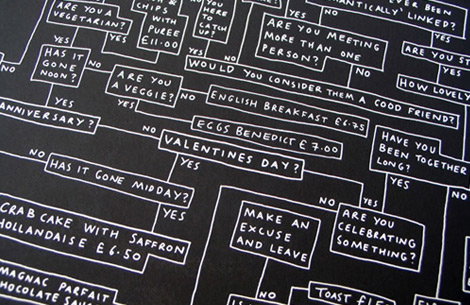 ARE YOU A
VEGETARIAN?
& CHIPS
WITH
PUREE
£11.00
ARE YOU MEETING
MORE THAN ONE
PERSON?
LINKED?
NO
YES
NO
HAS IT
GONE
NOON?
YES
NO
WOULD YOU CONSIDER THEM A GOOD FRIEND?
YES
NO
HOW LOVELY
ARE YOU
A VEGGIE?
NO
ENGLISH BREAKFAST £6.75
YES
YES
EGGS BENEDICT £7.00
ANNIVERSARY?
NO
VALENTINES DAY?
NO
HAVE YOU
BEEN TOGETHER
LONG?
NO
HAS IT GONE MIDDAY?
YES
YES
YES
CRAB CAKE WITH SAFFRON
HOLLANDAISE £6.50
MAKE AN
EXCUSE
AND LEAVE
NO
ARE YOU
CELEBRATING
SOMETHING?
NO
YES
MAGNAC PARFAIT
TOAST